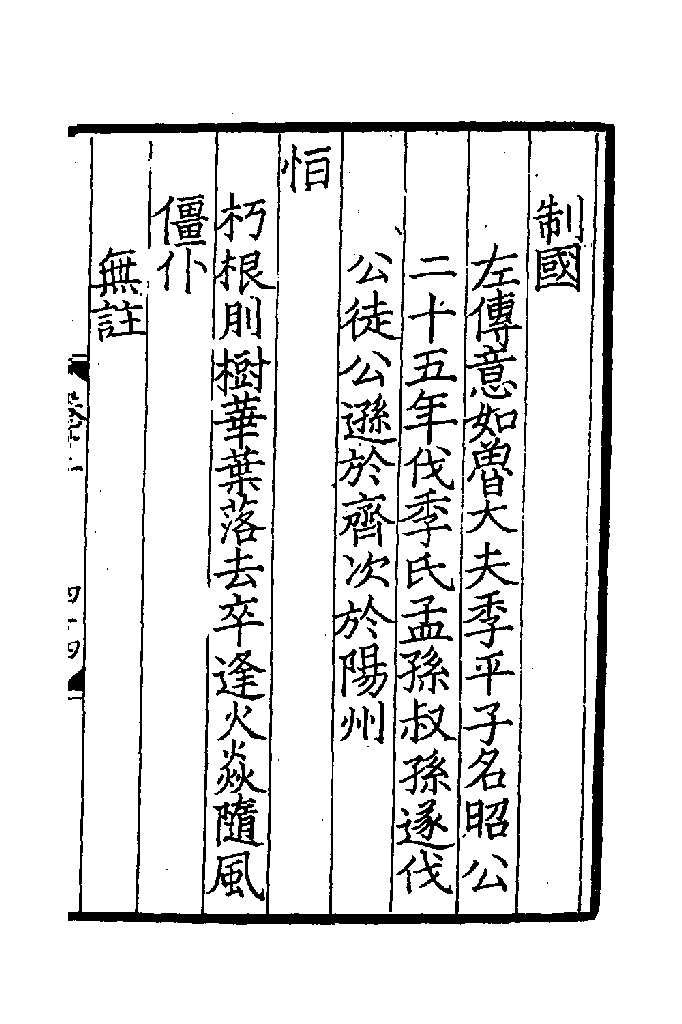 制國
左傳意如魯大夫季平子名昭公
二十五年伐季氏孟孫叔孫遂伐
公徒公遜於齊次於陽州
恒
朽根則樹華葉落去卒逢火焱隨風
僵仆
無註
四十四